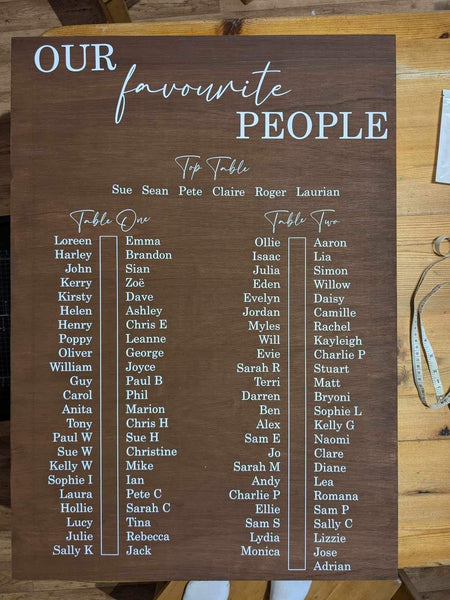 OUR
favourite
PEOPLE
Top Table
Sue Sean Pete Claire Roger Laurian
Table One
Loreen Emma
Harley Brandon
John Sian
Kerry Zoë
Kirsty Dave
Helen Ashley
Henry Chris E
Poppy Leanne
Oliver George
William Joyce
Guy Paul B
Carol Phil
Anita Marion
Tony Chris H
Paul W Sue H
Sue W Christine
Kelly W Mike
Sophie I Ian
Laura Pete C
Hollie Sarah C
Lucy Tina
Julie Rebecca
Sally K Jack
Table Two
Ollie Aaron
Isaac Lia
Julia Simon
Eden Willow
Evelyn Daisy
Jordan Camille
Myles Rachel
Will Kayleigh
Evie Charlie P
Sarah R Stuart
Terri Matt
Darren Bryoni
Ben Sophie L
Alex Kelly G
Sam E Naomi
Jo Clare
Sarah M Diane
Andy Lea
Charlie P Romana
Ellie Sam P
Sam S Sally C
Lydia Lizzie
Monica Jose
Adrian